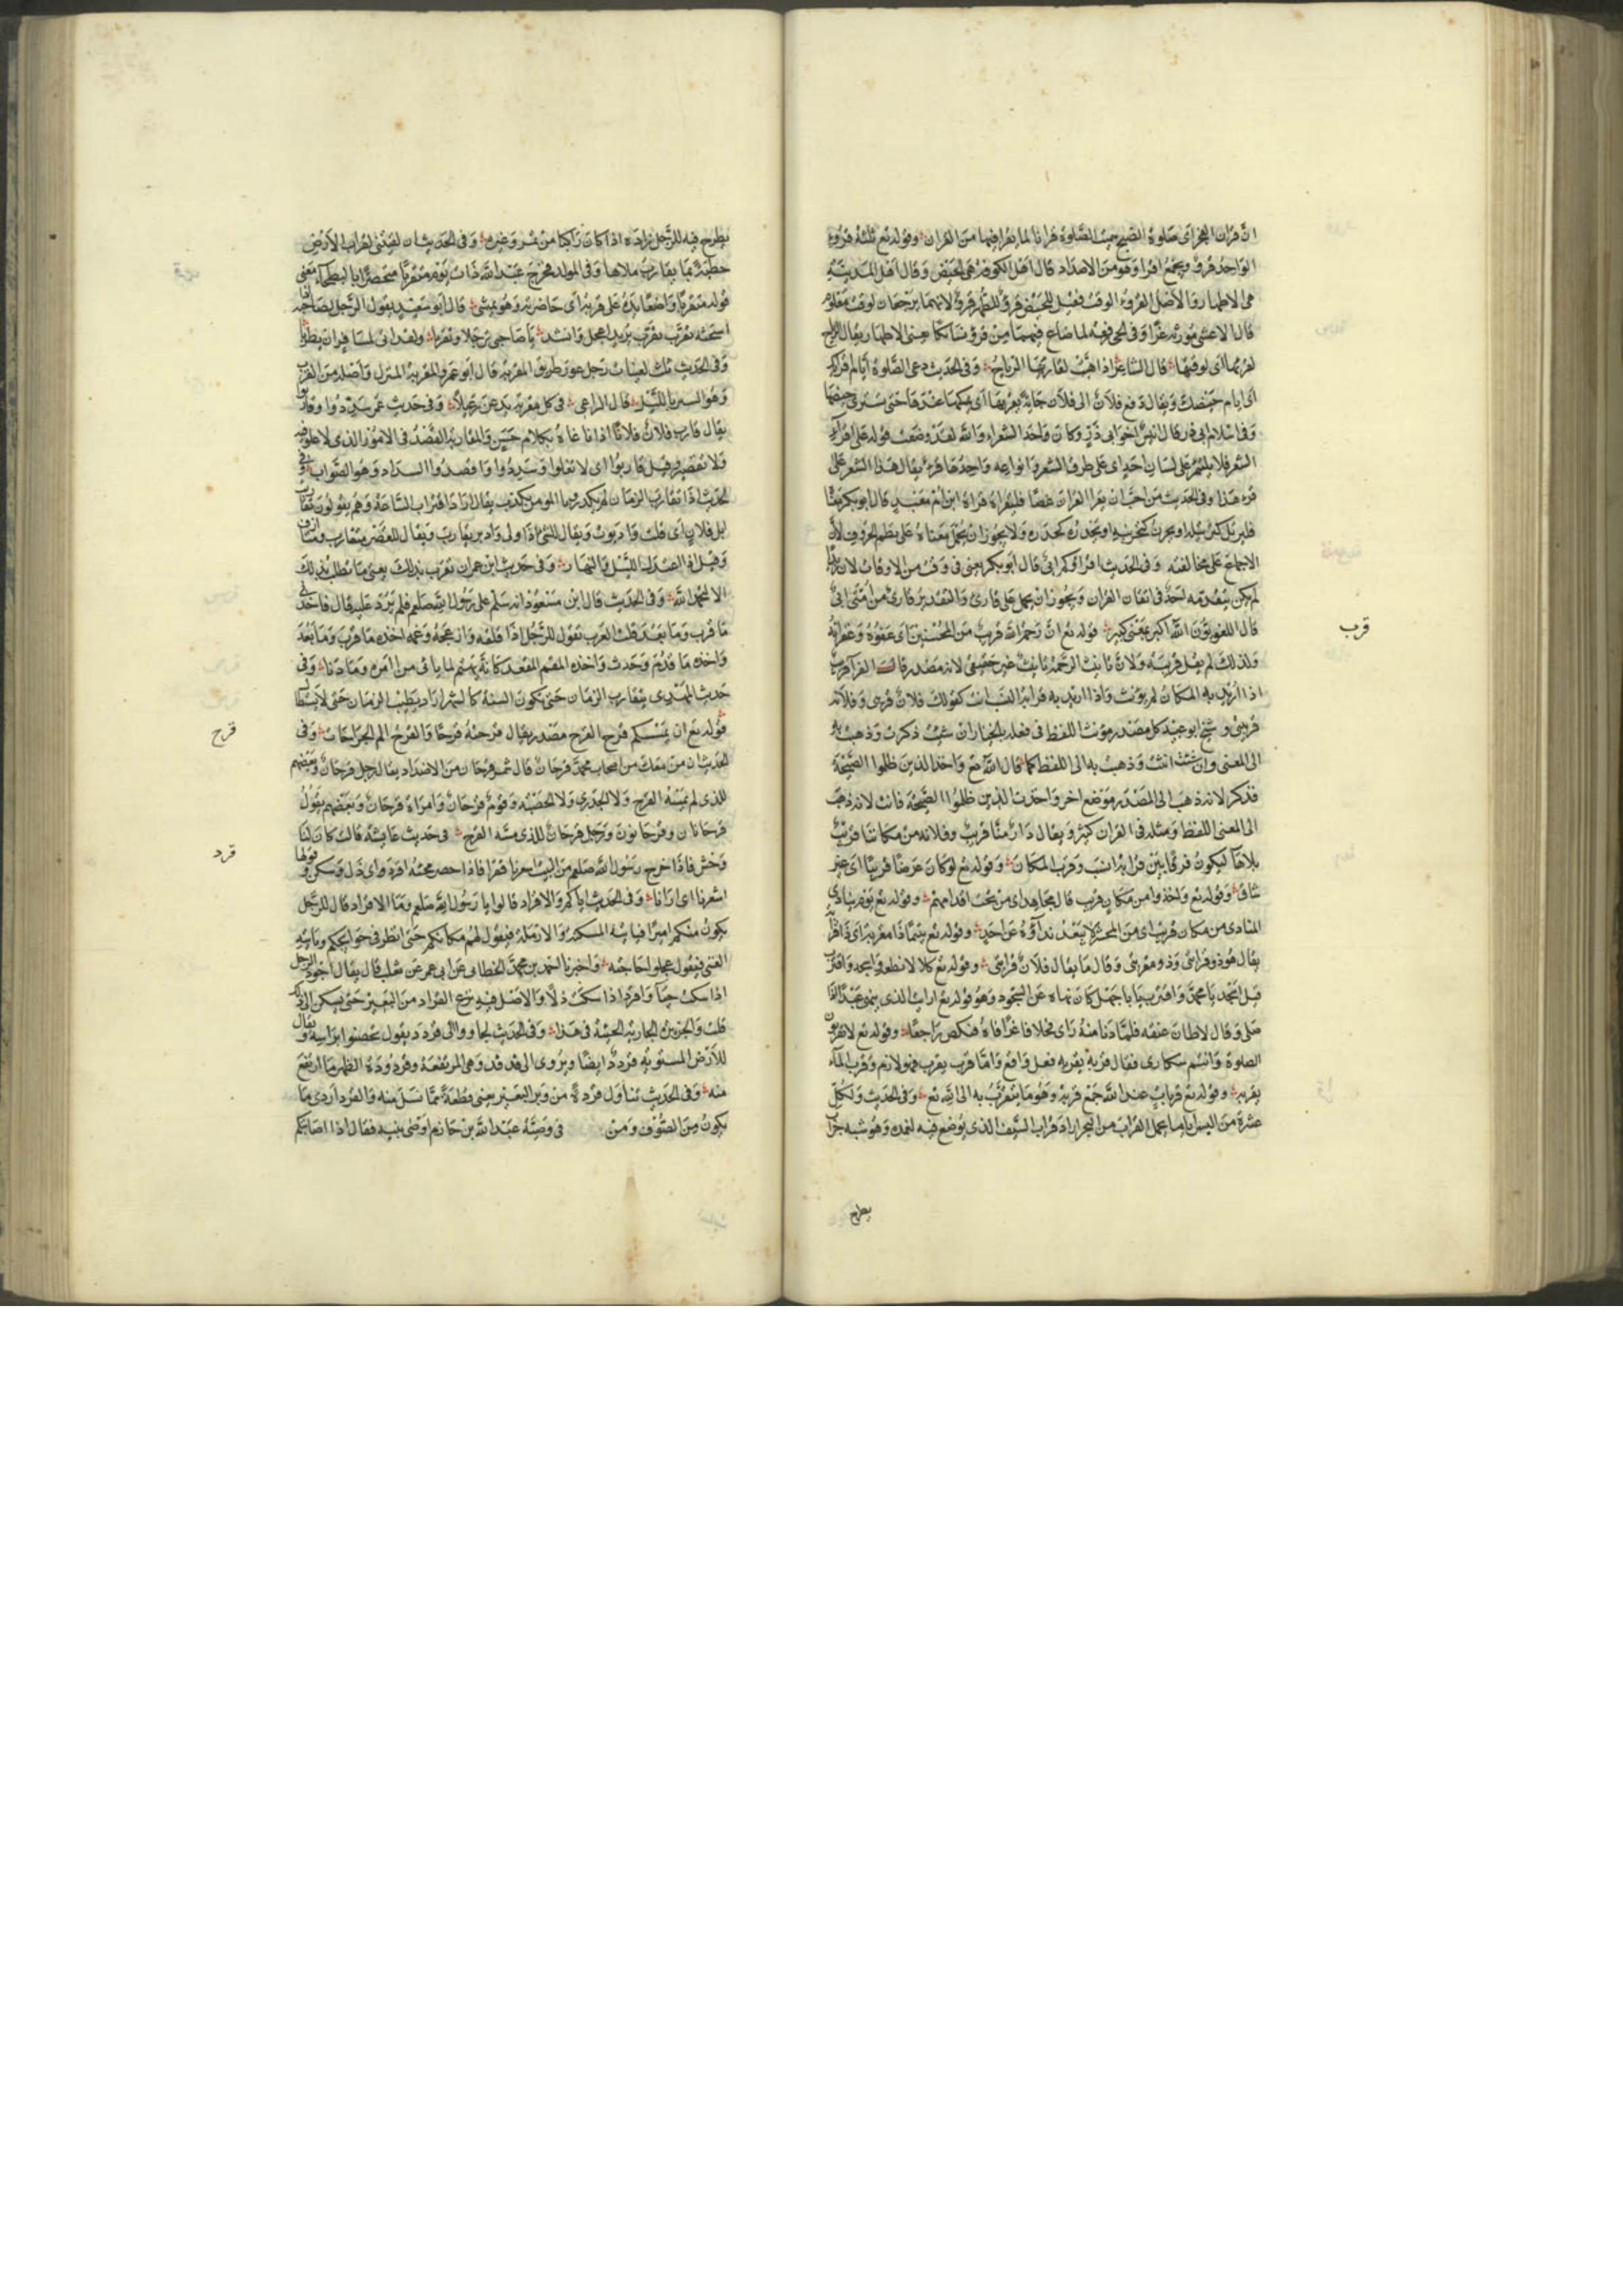 ان قران الفجر اى صلوة الصبح سميت الصلوة قرانا لما يقرا فيها من القران وقوله تع ثلثة قروء
الواحد قرؤ ويجمع اقرا وهو من الاضداد قال اهل الكوفة هى الحيض وقال اهل المدينة
هى الاطهار والاصل القرؤ الوقت فقيل للحيض قرؤ وللطهر قرؤ لانهما يرجعان لوقت معلوم
قال الاعشى مورثة عزا وفى الحى رفعة لما ضاع فيها من قرؤ نسائكا يعنى الاطهار يقال هبت الريح
لقرئها اى لوقتها قال الشاعر اذا هبت لقاريها الرياح وفى الحديث دعى الصلوة ايام اقرائك
اى ايام حيضك ويقال دفع فلان الى فلان جاريته يقرئها اى يمسكها عندها حتى تستبرى حيضها
وفى اسلام ابى ذر قال انيس اخو ابى ذر وكان واحد الشعراء والله لقد وضعت قوله على اقراء
الشعر فلا يلتئم على لسان احد اى على طرق الشعر وانواعه واحدها قرء يقال هذا الشعر على
قرء هذا وفى الحديث من احب ان يقرا القران غضا فليقراه قراة ابن ام معبد قال ابو بكر
الاجماع على مخالفته وفى الحديث اقراؤكم ابى قال ابو بكر يعنى فى وقت من الاوقات لان زيدا
لم يكن يتقدمه احد فى اتقان القران ويجوز ان يحمل على قارئ والتقدير قارئ من امتى ابى
قال اللغويون الله اكبر بمعنى كبير قوله تع ان رحمة الله قريب من المحسنين اى عفوه وغفرانه
ولذلك لم يقل قريبة ولان تانيث الرحمة تانيث غير حقيقى لانه مصدر قال الفرا قريب
اذا اريد به المكان لم يؤنث واذا اريد به قرابة النسب انث كقولك فلان قريبى وفلانة
قريبتى وشيخ ابو عبيد كل مصدر مؤنث اللفظ فى فعله بالخيار ان شئت ذكرت وذهبت به
الى المعنى وان شئت انثت وذهبت به الى اللفظ كما قال الله تع واخذ الذين ظلموا الصيحة
فذكر لانه ذهب الى المصدر وموضع اخر واخذت الذين ظلموا الصيحة فانث لانه ذهب
الى المعنى اللفظ ومثله فى القران كثير ويقال دار منا قريب وفلانة من مكاننا قريب
بلا هآ ليكون فرقا بين قرابة النسب وقرب المكان وقوله تع لو كان عرضا قريبا اى غير
شاق وقوله تع واخذوا من مكان قريب قال مجاهد اى من تحت اقدامهم وقوله تع يوم ينادى
المنادى من مكان قريب اى من المحشر لا يبعد نداؤه عن احد وقوله تع يتيما ذا مقربة اى ذا قرابة
يقال هو ذو قرابتى وذو مقربتى وقال ما يقال فلان قرابتى وقوله تع كلا لا تطعه واسجد واقترب
قيل اسجد يا محمد واقترب يا ابا جهل كان نهاه عن السجود وهو قوله تع ارايت الذى ينهى عبدا اذا
صلى وقال لاطان عنقه فلما دنا منه راى فحلا فاغرا فاه فنكص راجعا وقوله تع لا تقربوا
الصلوة وانتم سكارى فقال قربه يقربه فعل واقع واما قرب يقرب فهو لازم وقرب المآء
يقربه وقوله تع قربات عند الله جمع قربة وهو ما يتقرب به الى الله تع وفى الحديث ولكل
عشرة من السرايا ما يحمل القراب من التمر اراد قراب السيف الذى يوضع فيه لغمده وهو شبه جراب
يطرح
قرب
يطرح فيه للرجل زاده اذا كان راكبا من تمر وغيره وفى الحديث ان لقيتنى بقراب الارض
خطيئة بما يقارب ملاها وفى المولد فخرج عبد الله ذات يوم متقربا متخصرا بالبطحآء معنى
قوله متقربا واضعا يده على قربه اى خاصرته وهو يمشى قال ابو سعيد يقول الرجل لصاحبه اذا
استحثه تقرب تقرب يريد اعجل وانشد يا صاحبى ترحلا وتقربا ولقد انى لمسافر ان يطربا
وفى الحديث ثلث لعينات رجل عور طريق المقربة قال ابو عمرو المقربة المنزل واصله من القرب
وهو السير بالليل قال الراعى فى كل مقربة يدعن رعيلا وفى حديث عمر سددوا وقاربوا
يقال قارب فلان فلانا اذا ناغاه بكلام حسن والمقاربة القصد فى الامور الذى لا غلو فيه
ولا تقصير وقيل قاربوا اى لا تغلوا وسددوا واقصدوا السداد وهو الصواب وفى
الحديث اذا تقارب الزمان لم تكد رؤيا المومن تكذب يقال اراد اقتراب الساعة وهم يقولون تقارب
ابل فلان اى قلت وادبرت ويقال للشئ اذا ولى وادبر تقارب ويقال للقصير متقارب
وقيل اذا اعتدل الليل والنهار وفى حديث ابن عمران نقرب بذلك يعنى ما نطلب بذلك
الا الحمد لله وفى الحديث قال ابن مسعود انه سلم على رسول الله صلعم فلم يرد عليه قال فاخذنى
ما قرب وما بعد قلت العرب تقول للرجل اذا اقلقه وازعجه وغمه اخذه ما قرب وما بعد
واخذه ما قدم وحدث واخذه المقيم المقعد كانه يهتم لما ياتى من امره وما دنا وفى
حديث المهدى يتقارب الزمان حتى تكون السنة كالشهر اراد يطيب الزمان حتى لا يستطال
قوله تع ان يمسسكم قرح القرح مصدر يقال قرحته قرحا والقرح الم الجراحات وفى
الحديث ان من معك من اصحاب محمد قرحان قال شمر قرحان من الاضداد يقال رجل قرحان وبعضهم
للذى لم يمسه القرح ولا الجدرى ولا الحصبة وقوم قرحان وامراة قرحان وبعضهم يقول
قرحانان وقرحانون ورجل قرحان للذى مسه القرح فى حديث عايشة قالت كان لنا
وحش فاذا خرج رسول الله صلعم من البيت احرنا قفزا فاذا احضر مجيئه اقرد اى ذل وسكن وقولها
اسعرنا اى اذانا وفى الحديث اياكم والاقراد قالوا يا رسول الله صلعم وما الاقراد قال الرجل
يكون منكم اميرا فياتيه المسكين والارملة فيقول لهم مكانكم حتى انظر فى حوايجكم وياتيه
الغنى فيقول عجلوا حاجته واخبرنا احمد بن محمد الخطابى عن ابى عمر عن ثعلب قال يقال اخرد الرجل
اذا سكت حيآ واقرد اذا سكت ذلا والاصل فيه نزع القراد من البعير حتى يسكن الى ذلك
قلت
للارض المستوية قردد ايضا ويروى الى فدفد وهى المرتفعة وقردودة الظهر ما ارتفع
منه وفى الحديث تناول قردة من وبر البعير يعنى قطعة مما نسل منه والقرد اردى ما
يكون من الصوف ومن فى وصية عبد الله بن خازم اوصى بنيه فقال اذا اصابتكم
قرح
قرد